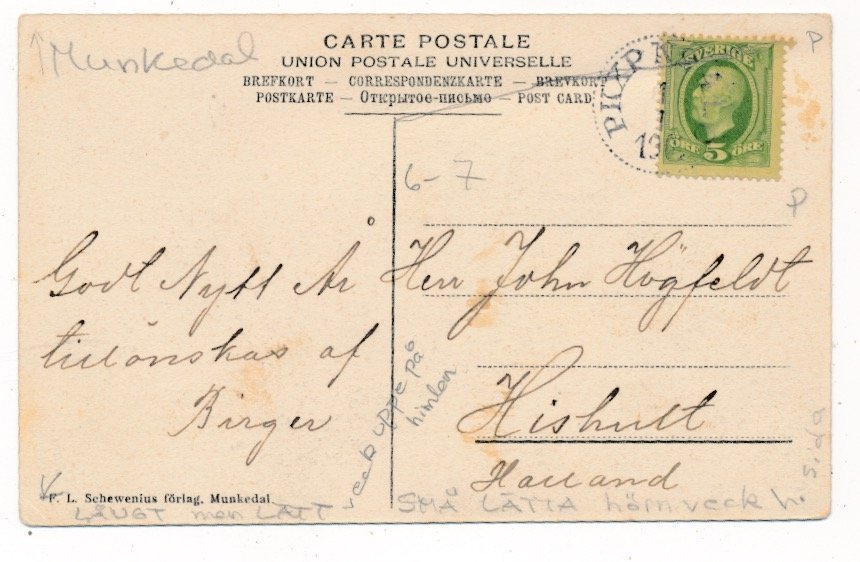 ↑Munkedal
CARTE POSTALE
UNION POSTALE UNIVERSELLE
BREFKORT — CORRESPONDENZKARTE — BREVKORT
POSTKARTE — Открытое-письмо — POST CARD
PKXP N
19
SVERIGE
ÖRE 5 ÖRE
P
P
6-7
Godt Nytt År
tillönskas af
Birger
Herr John Högfeldt
Hishult
Halland
F. L. Schewenius förlag, Munkedal.
LÅNGT men LÄTT
veck uppe på
himlen
SMÅ LÄTTA hörnveck h.
sida